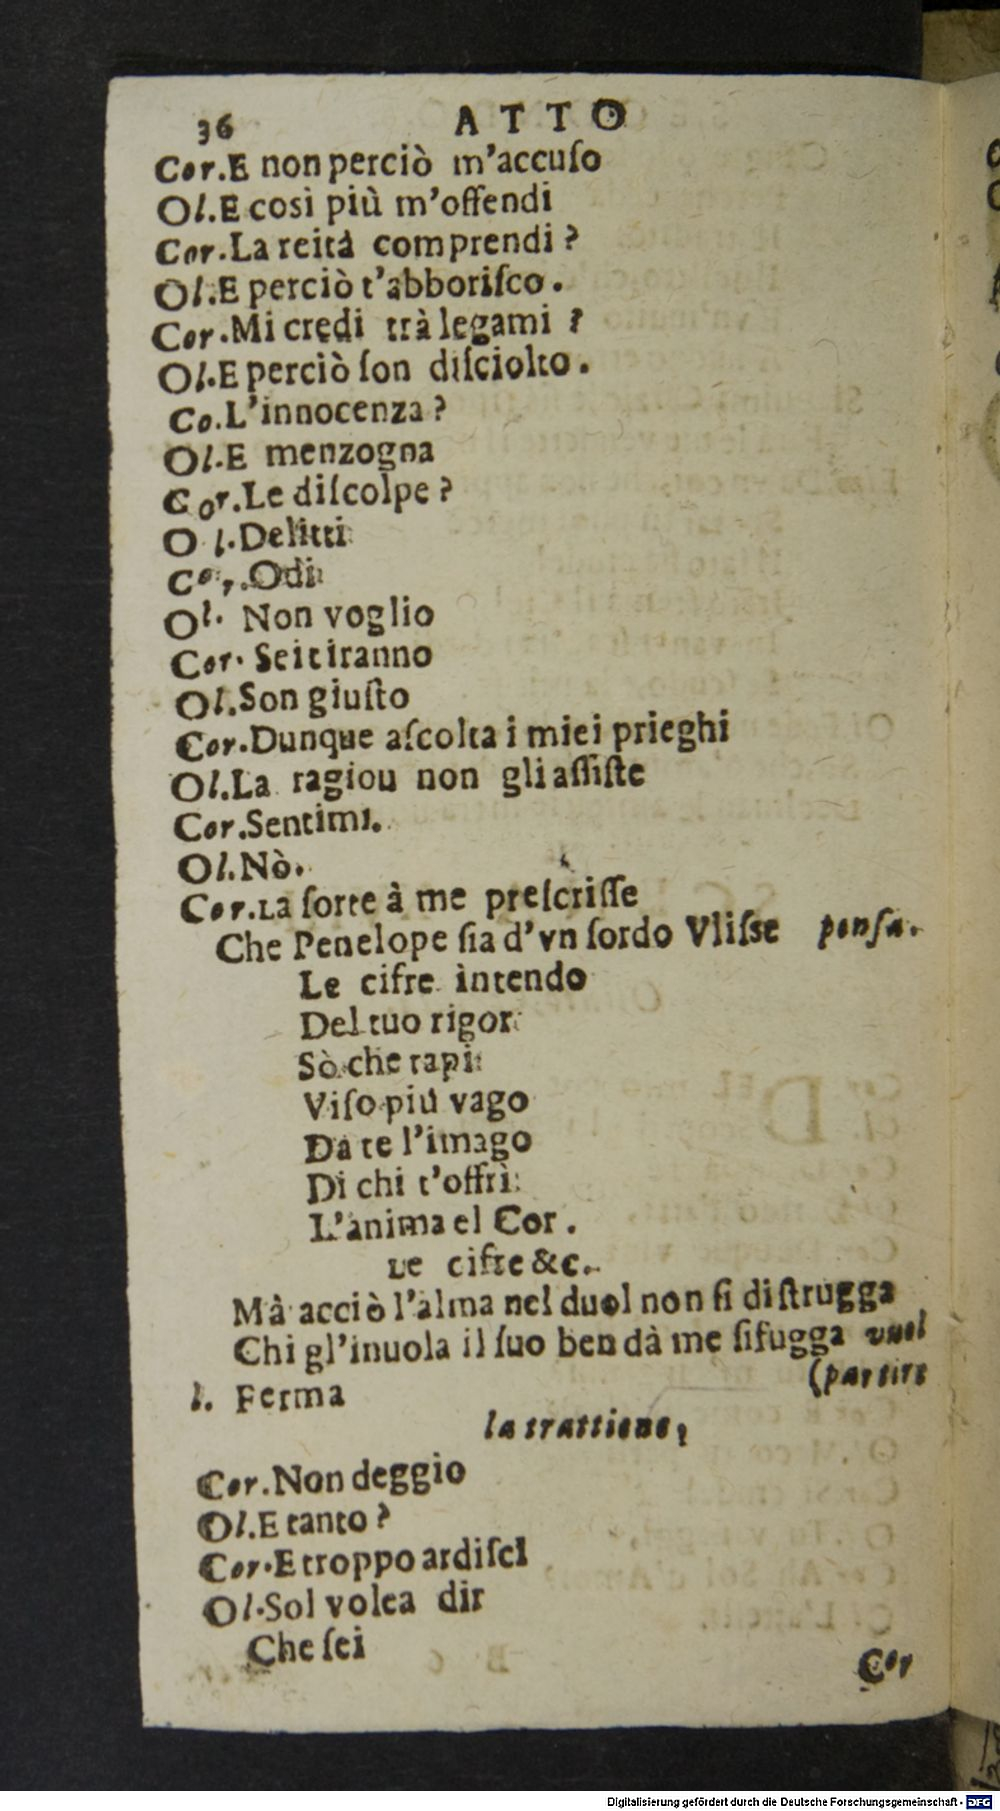 36 ATTO
Cor. E non perciò m'accuſo
Ol. E così più m'offendi
Cor. La reità comprendi?
Ol. E perciò t'abboriſco.
Cor. Mi credi trà legami?
Ol. E perciò ſon diſciolto.
Co. L'innocenza?
Ol. E menzogna
Cor. Le diſcolpe?
Ol. Delitti
Cor. Odi
Ol. Non voglio
Cor. Sei tiranno
Ol. Son giuſto
Cor. Dunque aſcolta i miei prieghi
Ol. La ragiou non gli aſſiſte
Cor. Sentimi.
Ol. Nò.
Cor. La ſorte à me preſcriſſe
Che Penelope ſia d'vn ſordo Vliſse penſa.
Le cifre intendo
Del tuo rigor
Sò che rapi
Viſo più vago
Da te l'imago
Di chi t'offrì
L'anima el Cor.
Le cifre &c.
Mà acciò l'alma nel duol non ſi diſtrugga
Chi gl'inuola il ſuo ben dà me ſifugga vuol
(partire
l. Ferma
la trattiene,
Cor. Non deggio
Ol. E tanto?
Cor. E troppo ardiſcI
Ol. Sol volea dir
Che ſei
Cor
Digitalisierung gefördert durch die Deutsche Forschungsgemeinschaft - DFG